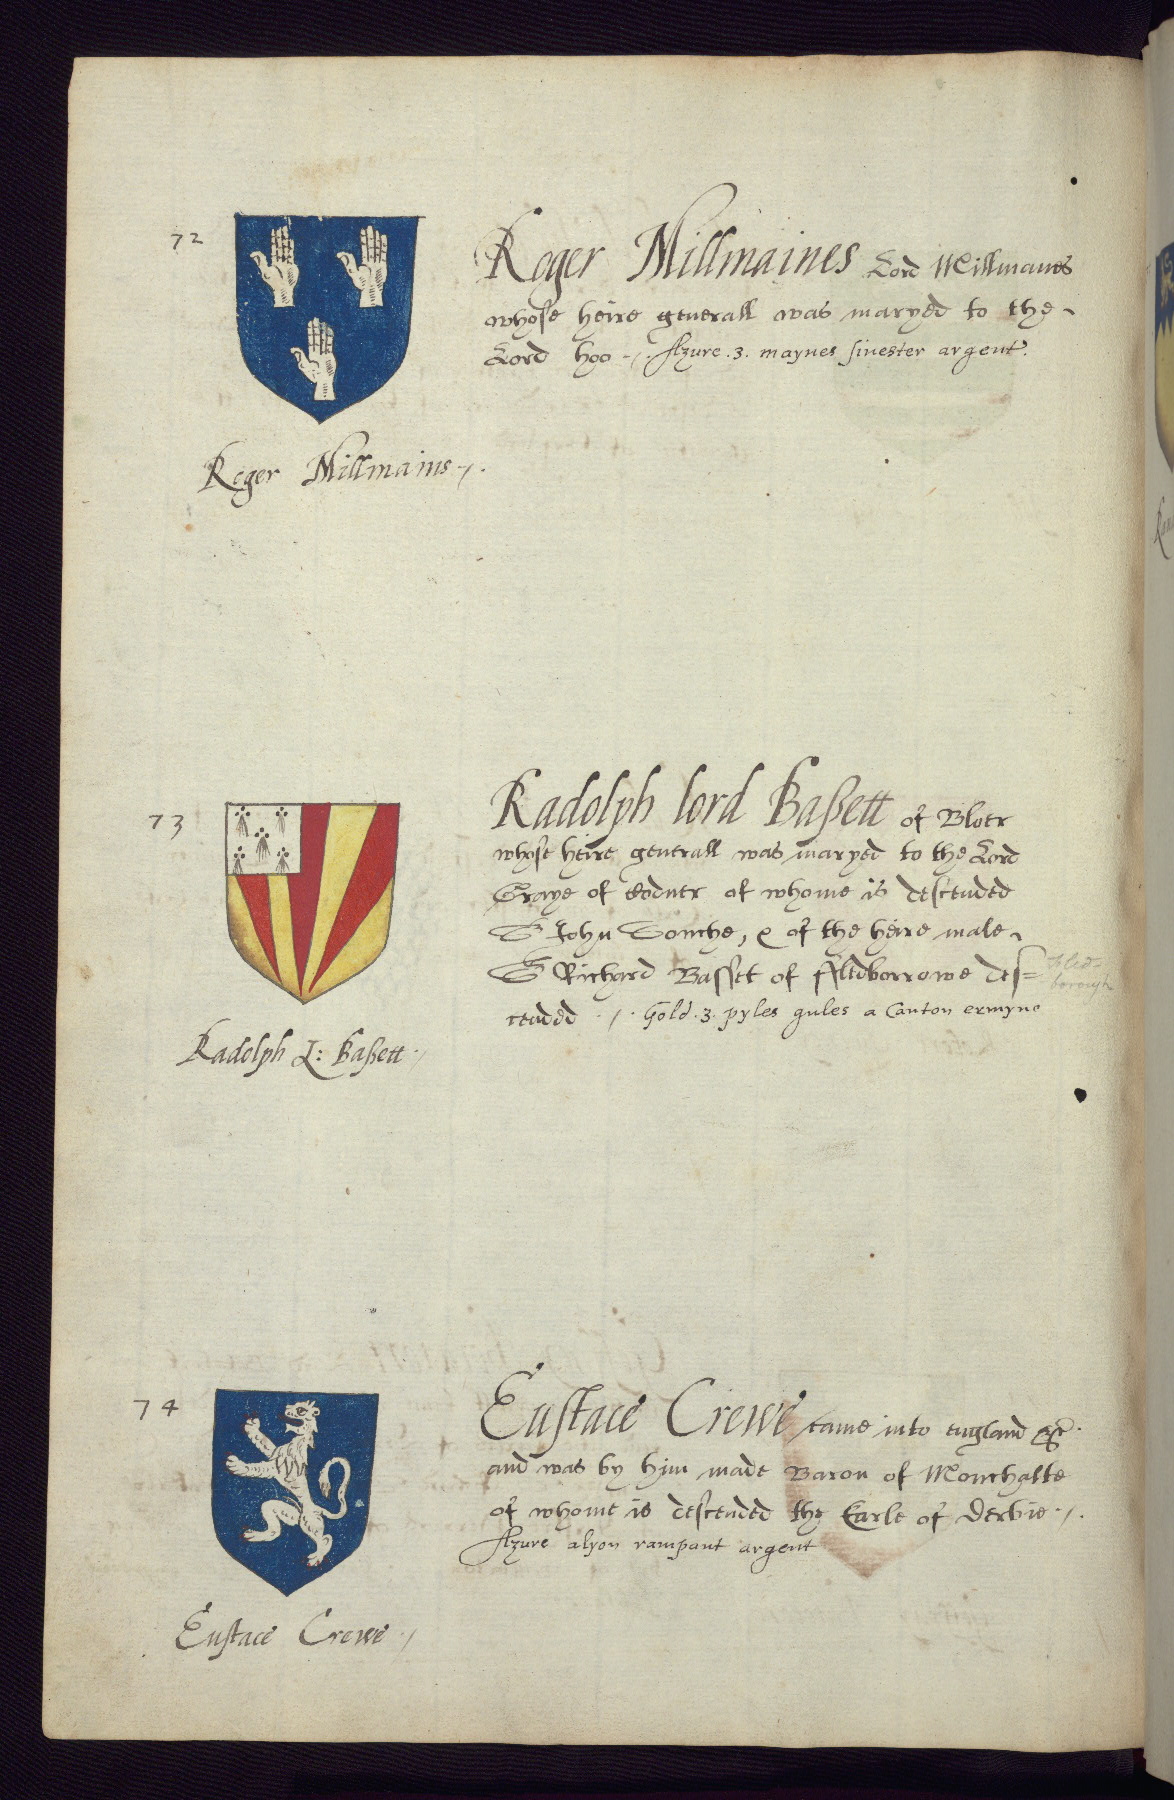 72
Roger Millmaines Lord Millmanes
whose heire generall was maryed to the
Lord hoo Azure .3. maynes sinester argent.
Roger Millmains
73
Radolph lord Bassett of Bloer
whose heire generall was maryed to the Lord
Graye of Codner of whome is descended
Sr John Souche, & of the heire male
Sr Richard Basset of Aledborrowe des=
cended . Gold .3. pyles gules a Canton ermyne
Aled=
borough
Radolph L: Bassett
74
Eustace Crewe came into england &c.
and was by him made Baron of Monchalte
of whome is descended the Earle of Derbie
Azure alyon rampant argent
Eustace Crewe